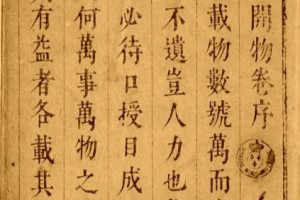 開物卷序
載物數號萬而
不遺豈人力也
必待口授目成
何萬事萬物之
有益者各載其